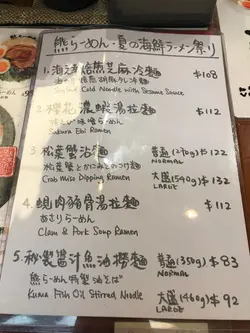 熊らーめん・夏の海鮮ラーメン祭り
1. 海之焰熊芝麻冷麺 $108
Seafood Cold Noodle with Sesame Sauce
2. 櫻花濃蝦湯拉麵 $112
Sakura Ebi Ramen
3. 松葉蟹沾麵 普通(270g) $122
NORMAL
松葉蟹とかにみそのつけ麺 大盛(540g) $132
Crab Miso Dipping Ramen LARGE
4. 蜆肉豬骨湯拉麵 $112
あさりらーめん
Clam & Pork Soup Ramen
5. 秘製醬汁魚油撈麵 普通(350g) $83
NORMAL
熊らーめん特製油そば 大盛(460g) $92
Kuma Fish Oil Stirred Noodle LARGE